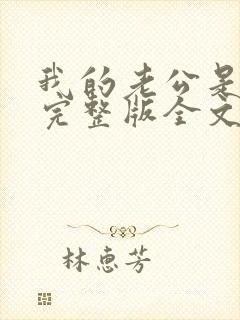 我的老公是
完整版全文
林惠芳